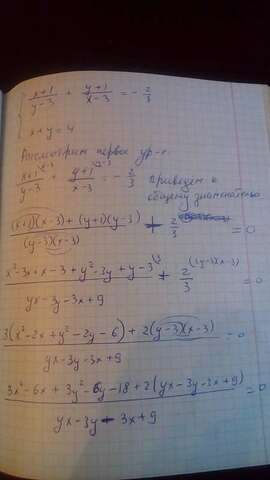 { (x+1)/(y-3) + (y+1)/(x-3) = - 2/3
x+y=4
Рассмотрим первое ур-е.
(x+1)^(x-3)/(y-3) + (y+1)^(x-3)/(x-3) = - 2/3 приведём к общему знаменателю
((x+1)(x-3) + (y+1)(y-3))/((y-3)(x-3)) + 2/3 = 0
(x²-3x+x-3+y²-3y+y-3)/(yx-3y-3x+9) + 2/3 (y-3)(x-3) = 0
(3(x²-2x+y²-2y-6) + 2(y-3)(x-3))/(yx-3y-3x+9) = 0
(3x²-6x+3y²-6y-18+2(yx-3y-3x+9))/(yx-3y-3x+9) = 0